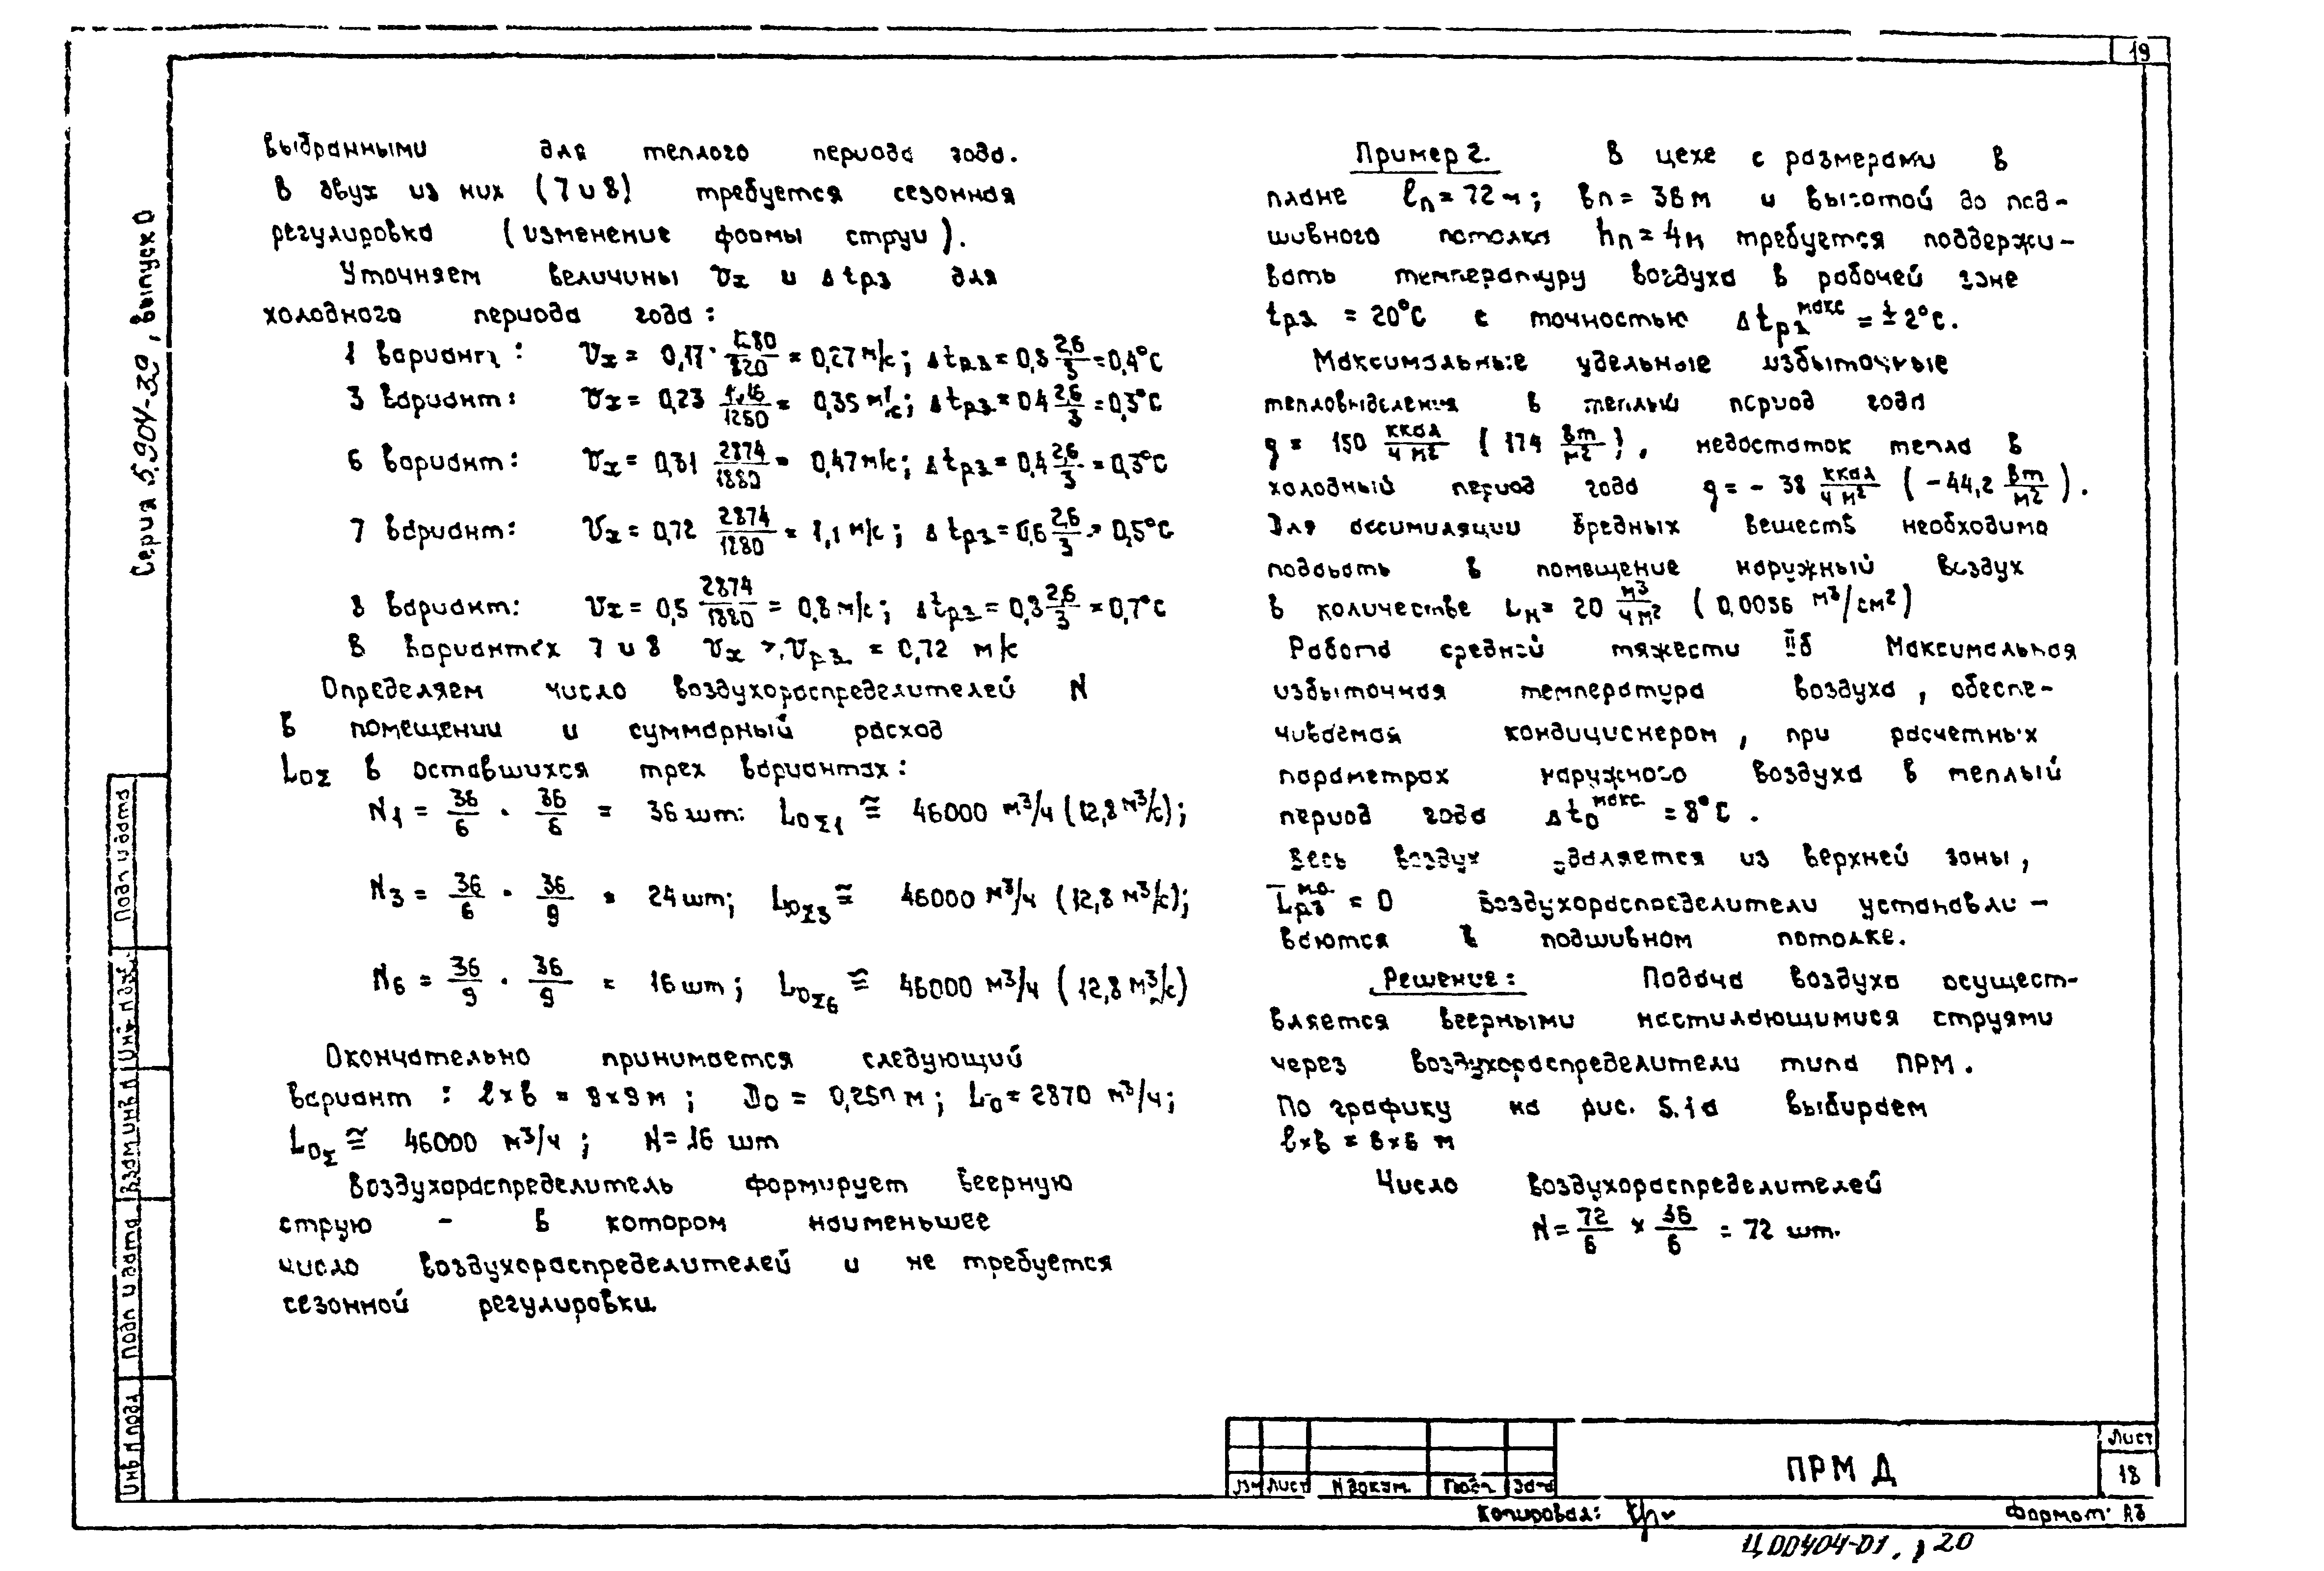 19
Серия 5.904-39, выпуск 0
выбранными для теплого периода года.
В двух из них (7 и 8) требуется сезонная
регулировка (изменение формы струи).
Уточняем величины Vx и Δtрз для
холодного периода года:
1 вариант: Vx = 0,17 · 1280/820 = 0,27 м/с; Δtрз = 0,5 2,6/3 = 0,4°С
3 вариант: Vx = 0,23 /1250 = 0,35 м/с; Δtрз = 0,4 2,6/3 = 0,3°С
6 вариант: Vx = 0,31 2874/1880 = 0,47 м/с; Δtрз = 0,4 2,6/3 = 0,3°С
7 вариант: Vx = 0,72 2874/1880 = 1,1 м/с; Δtрз = 0,6 2,6/3 = 0,5°С
8 вариант: Vx = 0,5 2874/1880 = 0,8 м/с; Δtрз = 0,8 2,6/3 = 0,7°С
В вариантах 7 и 8 Vx > Vрз = 0,72 м/с
Определяем число воздухораспределителей N
в помещении и суммарный расход
LoΣ в оставшихся трех вариантах:
N1 = 36/6 · 36/6 = 36 шт: LoΣ1 ≅ 46000 м³/ч (12,8 м³/с);
N3 = 36/6 · 36/9 = 24 шт; LoΣ3 ≅ 46000 м³/ч (12,8 м³/с);
N6 = 36/9 · 36/9 = 16 шт; LoΣ6 ≅ 46000 м³/ч (12,8 м³/с)
Окончательно принимается следующий
вариант: l×b = 9×9 м; Do = 0,250 м; Lo = 2870 м³/ч;
LoΣ ≅ 46000 м³/ч; N = 16 шт
Воздухораспределитель формирует веерную
струю - в котором наименьшее
число воздухораспределителей и не требуется
сезонной регулировки.
Пример 2. В цехе с размерами в
плане lп = 72 м; вп = 36 м и высотой до под-
шивного потолка hп = 4 м требуется поддержи-
вать температуру воздуха в рабочей зоне
tрз = 20°С с точностью Δtрз макс = ±2°С.
Максимальные удельные избыточные
тепловыделения в теплый период года
q = 150 ккал/ч м² (174 вт/м²), недостаток тепла в
холодный период года q = - 38 ккал/ч м² (-44,2 вт/м²).
Для ассимиляции вредных веществ необходимо
подавать в помещение наружный воздух
в количестве Lн = 20 м³/ч м² (0,0056 м³/см²)
Работа средней тяжести IIб Максимальная
избыточная температура воздуха, обеспе-
чиваемая кондиционером, при расчетных
параметрах наружного воздуха в теплый
период года Δto макс. = 8°С.
Весь воздух удаляется из верхней зоны,
Lрз м.о. = 0 Воздухораспределители устанавли-
ваются в подшивном потолке.
Решение: Подача воздуха осущест-
вляется веерными настилающимися струями
через воздухораспределители типа ПРМ.
По графику на рис. 5.1а выбираем
l×b = 6×6 м
Число воздухораспределителей
N = 72/6 × 36/6 = 72 шт.
Подп и дата
Инв N дубл.
Взам инв N
Подп и дата
Инв N подл
Изм Лист N докум. Подп. Дата
ПРМ Д
Лист
18
Копировал:
Формат: А3
Ц00404-01, 20